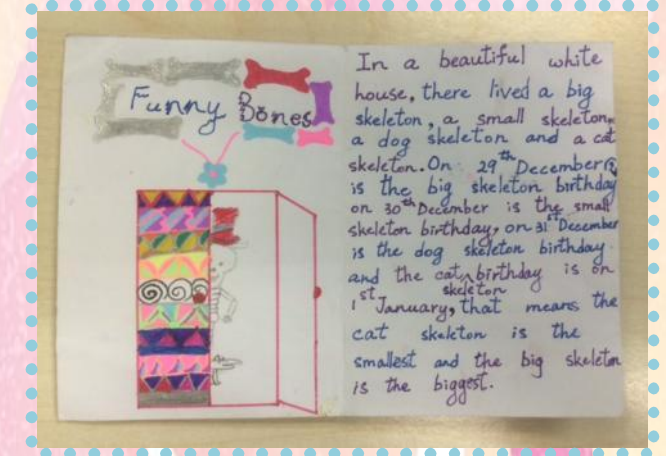 Funny Bones
In a beautiful white
house, there lived a big
skeleton, a small skeleton,
a dog skeleton and a cat
skeleton. On 29th December
is the big skeleton birthday
on 30th December is the small
skeleton birthday, on 31st December
is the dog skeleton birthday
and the cat skeleton birthday is on
1st January, that means the
cat skeleton is the
smallest and the big skeleton
is the biggest.